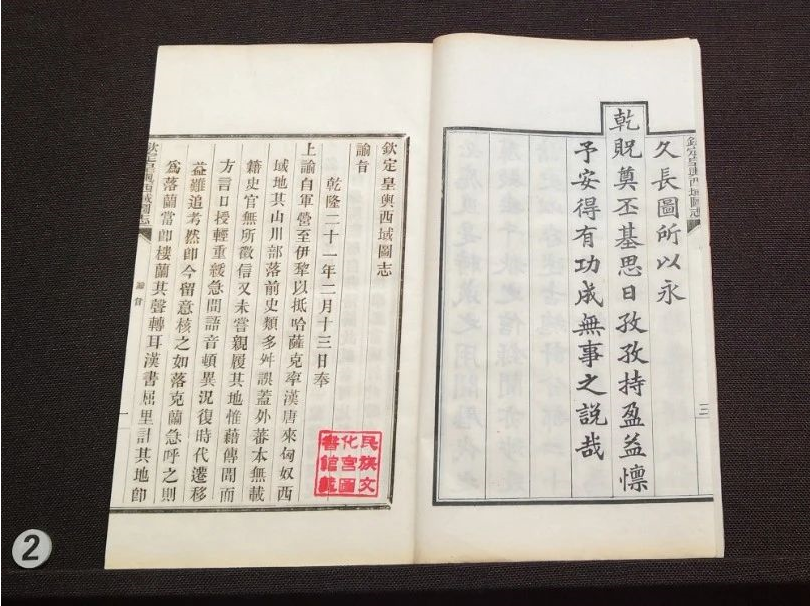 欽定皇輿西域圖志
三
久長圖所以永
乾貺奠丕基思日孜孜持盈益懍
予安得有功成無事之説哉
欽定皇輿西域圖志
諭旨
乾隆二十一年二月十三日奉
上諭自軍營至伊犂以抵哈薩克率漢唐來匈奴西
域地其山川部落前史類多舛誤蓋外蕃本無載
籍史官無所徵信又未嘗親履其地惟藉傳聞而
方言口授輕重緩急間語音頓異況復時代遷移
益難追考然卽今留意核之如落克蘭急呼之則
爲落蘭當卽樓蘭其聲轉耳漢書屈里計其地卽
民族文
化宮圖
書館藏
欽定皇輿西域圖志
諭旨
一
2